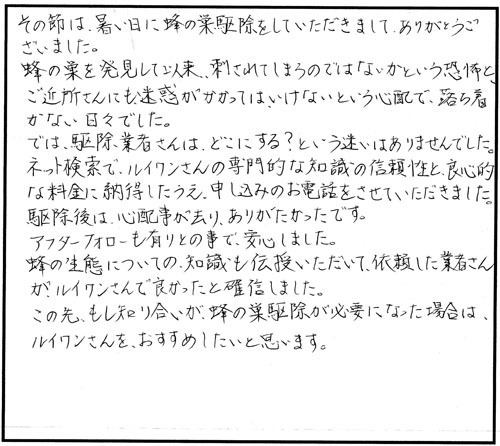 その節は、暑い日に蜂の巣駆除をしていただきまして、ありがとうご
ざいました。
蜂の巣を発見して以来、刺されてしまうのではないかという恐怖と、
ご近所さんにも迷惑がかかってはいけないという心配で、落ち着
かない日々でした。
では、駆除業者さんは、どこにする?という迷いはありませんでした。
ネット検索で、ルイワンさんの専門的な知識の信頼性と、良心的
な料金に納得したうえ、申し込みのお電話をさせていただきました。
駆除後は、心配事が去り、ありがたかったです。
アフターフォローも有りとの事で、安心しました。
蜂の生態についての、知識も伝授いただいて、依頼した業者さん
が、ルイワンさんで良かったと確信しました。
この先、もし知り合いが、蜂の巣駆除が必要になった場合は、
ルイワンさんを、おすすめしたいと思います。